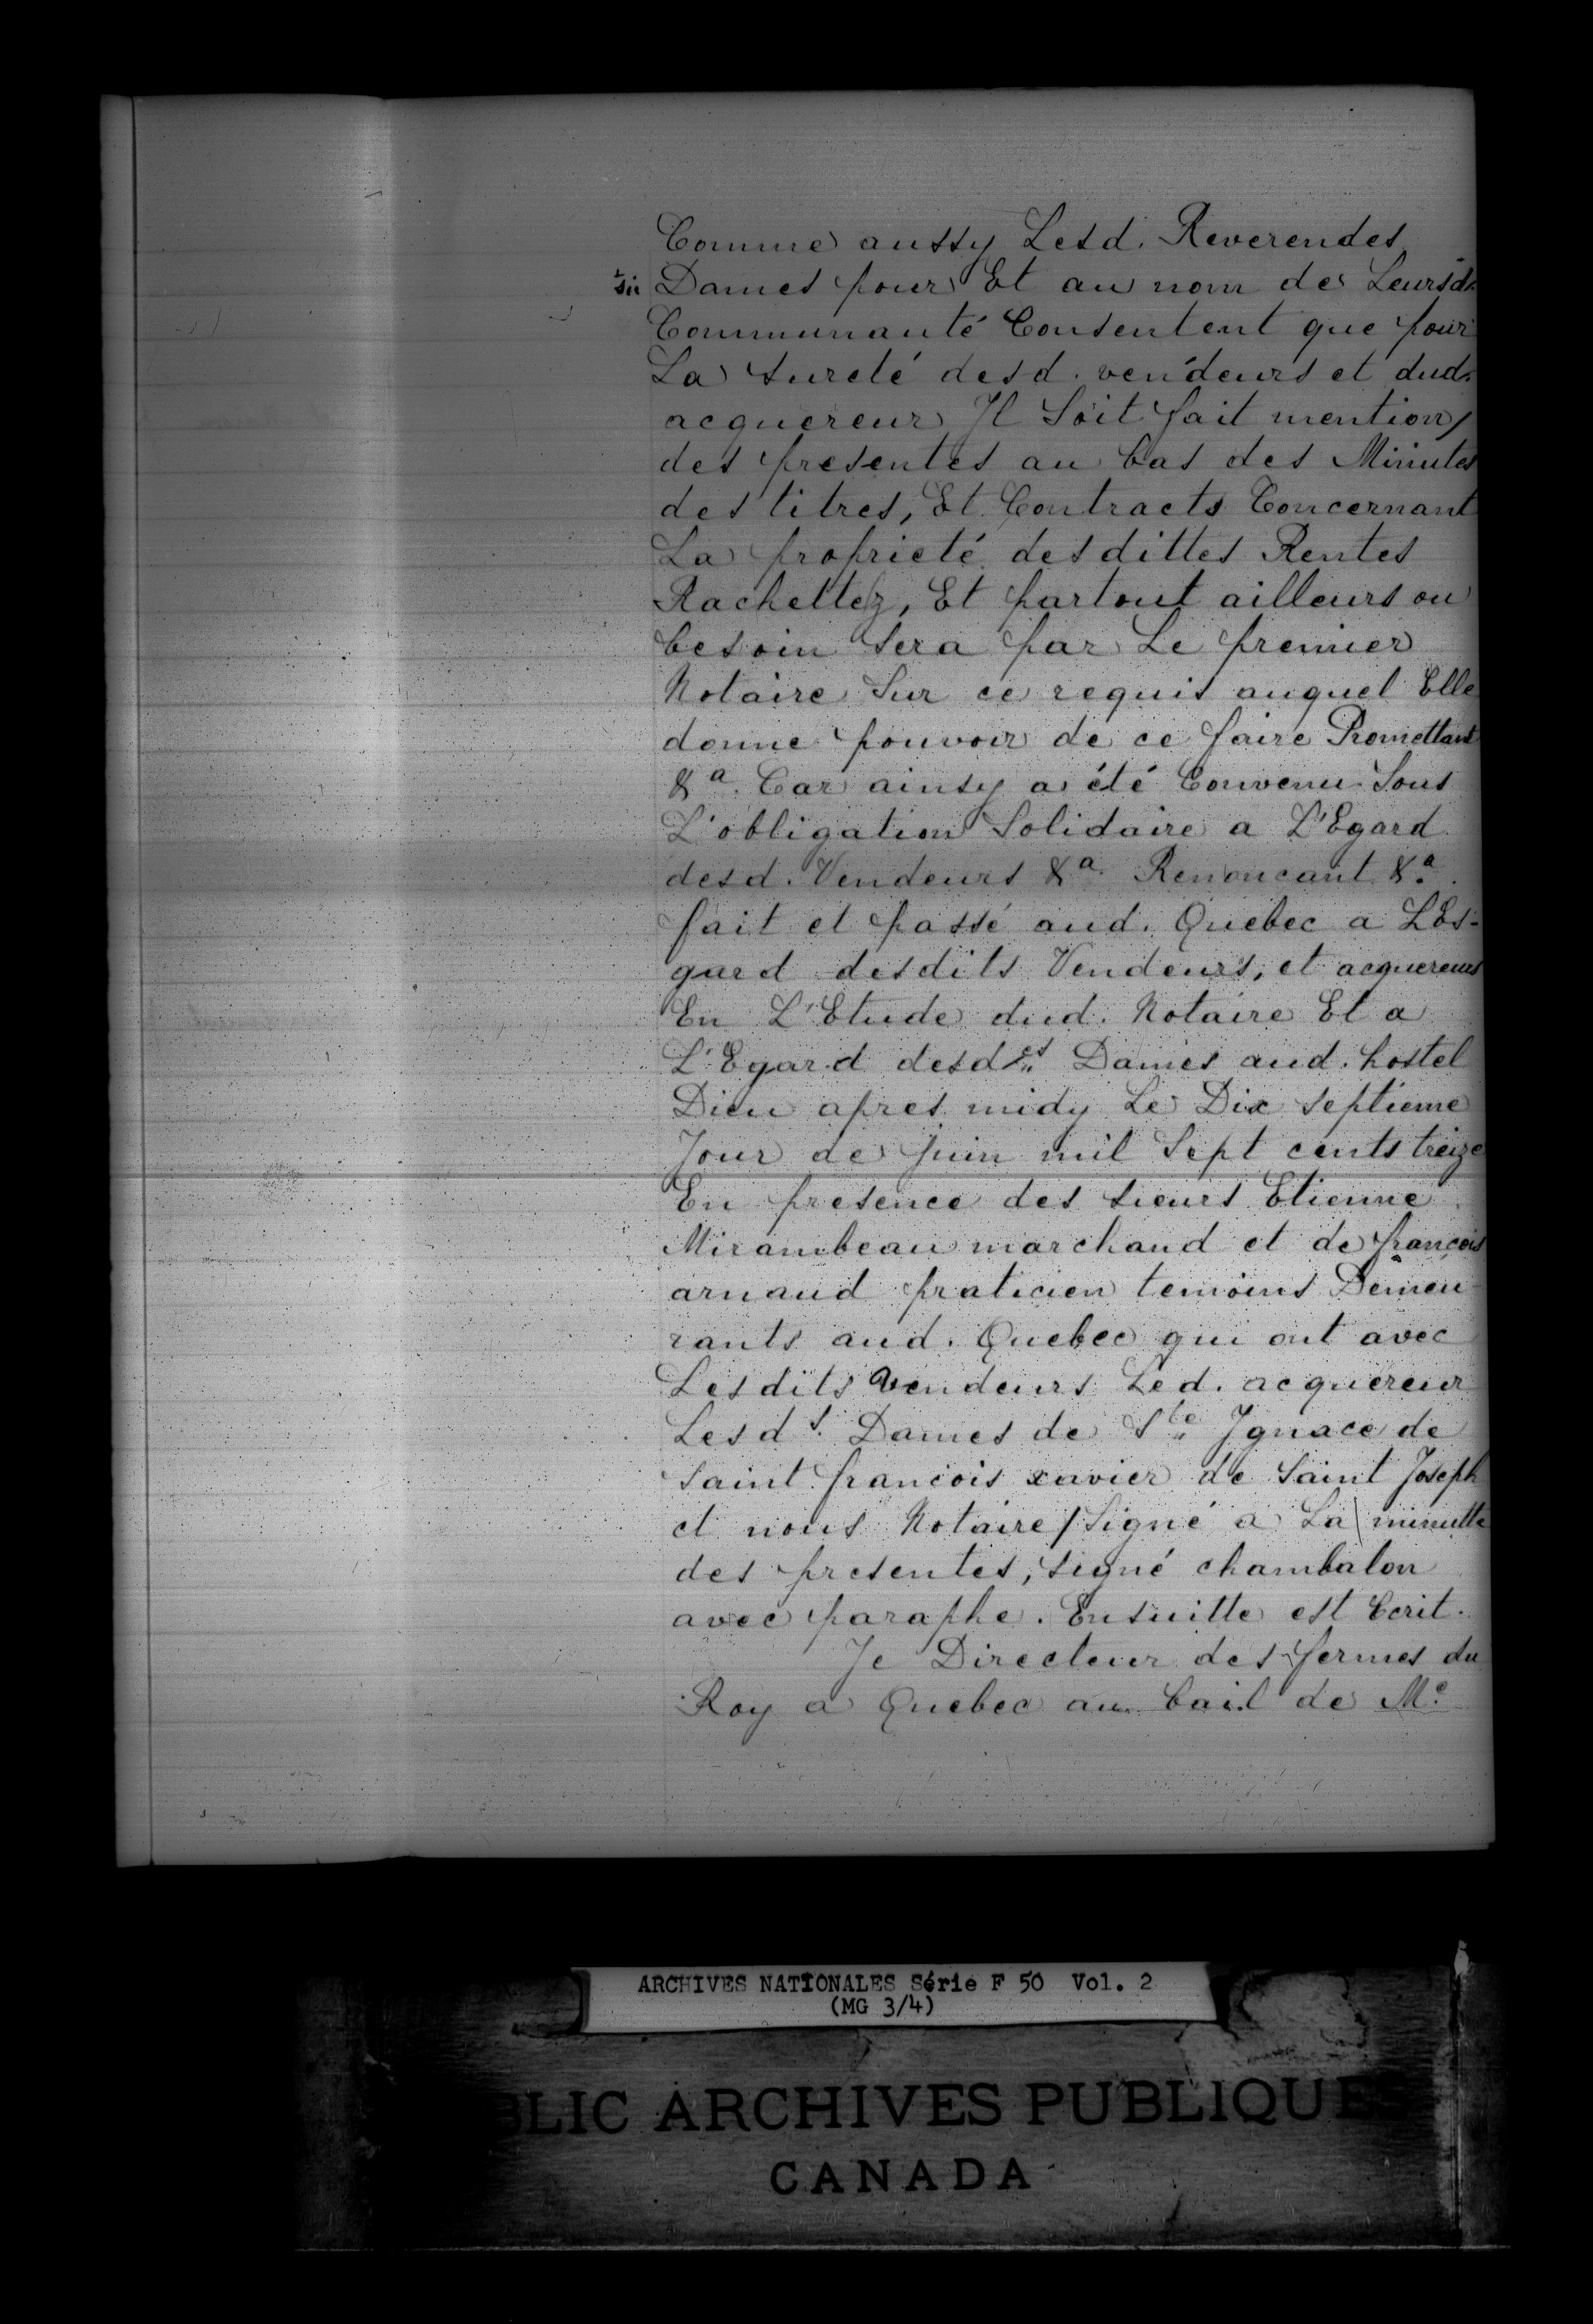 Comme aussy Lesd. Reverendes
sic Dames pour Et au nom de Leursd.
Communauté Consentent que pour
La sureté desd. vendeurs et dud.
acquereur Il Soit fait mention
des presentes au bas des Minutes
des titres, Et Contracts Concernant
La proprieté desdittes Rentes
Rachettez, Et partout ailleurs ou
besoin sera par Le premier
Notaire Sur ce requis auquel Elle
donne pouvoir de ce faire Promettant
&a. Car ainsy a été Convenu Sous
L'obligation Solidaire a L'Egard
desd. Vendeurs &a. Renoncant &a.
fait et passé aud. Quebec a L'Es-
gard desdits Vendeurs, et acquereurs
En L'Etude dud. Notaire Et a
L'Egard desdes Dames aud. hostel
Dieu apres midy Le Dix septieme
Jour de Juin mil Sept cents treize
En presence des sieurs Etienne
Mirambeau marchand et de françois
arnaud praticien temoins Demeu-
rants aud. Quebec qui ont avec
Lesdits vendeurs Led. acquereur
Lesds. Dames de Ste Ignace de
saint francois xavier de Saint Joseph
et nous Notaire / Signé a La minutte
des presentes, signé chambalon
avec paraphe. Ensuitte est Ecrit.
Je Directeur des fermes du
Roy a Quebec au bail de Me
ARCHIVES NATIONALES Série F 50 Vol. 2
(MG 3/4)
BLIC ARCHIVES PUBLIQUES
CANADA